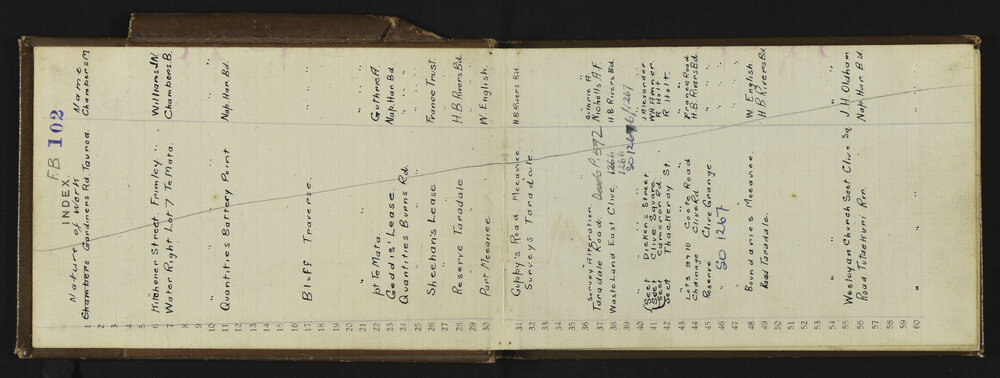 F.B. 102
INDEX.
Nature of Work Name
1 Chambers Gardiners Rd. Tauroa. Chambers M
2
3
4
5 " " "
6 Kitchener Street Frimley .. Williams J.N.
7 Water Right Lot 7 Te Mata. Chambers B.
8
9
10 " " "
11 Quantities Battery Point Nap. Har. Bd.
12
13
14
15
16
17 Bluff Traverse. " "
18
19
20
21 " " "
22 pt Te Mata. Guthrie A
23 Geddis' Lease. Nap. Har. Bd.
24 Quantities Burns Rd.
25 " "
26 Sheehan's Lease Trust.
27
28 Reserve Taradale H.B. Rivers Bd
29
30 Part Meeanee. W English
31 Gippy's Road Meeanee. H.B. Rivers Bd.
32 Surveys Taradale.
33
34
35
36 Survey Alteration. Guthrie A.
37 Taradale Road. P. 592 Nicholls A.F.
38 Waste Land East Clive 1266 H.B. Rivers Bd.
39 " " 1266
40 Sect Dickens Street SO 1267 1267 J Alexander
41 Sect Clive Square
Sect Cameron Rd. R Holt
42 Sect Thackeray St. R Holt.
43 Lots 9 & 10 Coote Road
44 Chainage Clive Rd H.B. Rivers Bd.
45 Reserve Clive Grange
46 " SO 1267 "
47
48 Boundaries Meeanee. W English.
49 Road Taradale. H.B. Rivers Bd.
50
51
52
53
54 " "
55 Wesleyan Church Sect Clive Sq. J.H Oldham
56 Road Tutaekuri Rvr. Nap. Har. Bd.
57
58
59
60 " " "